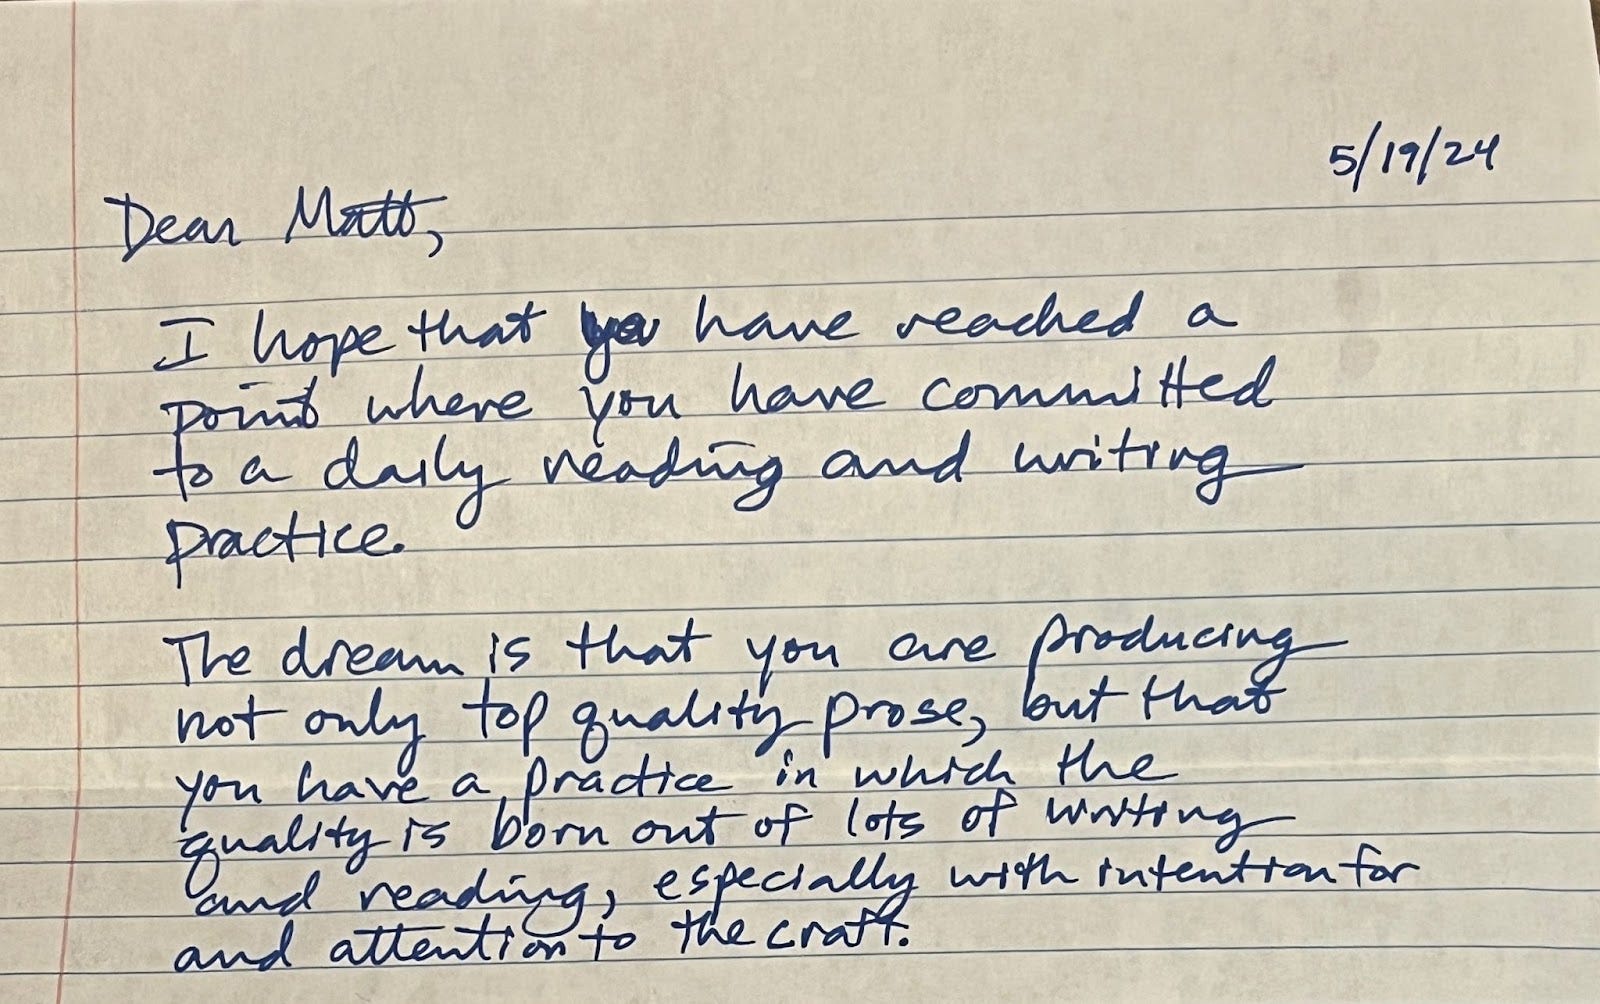 5/19/24
Dear Matt,
I hope that you have reached a
point where you have committed
to a daily reading and writing
practice.
The dream is that you are producing
not only top quality prose, but that
you have a practice in which the
quality is born out of lots of writing
and reading, especially with intention for
and attention to the craft.